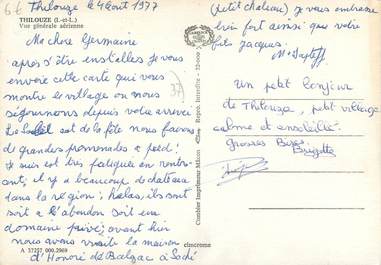 6€ Thilouze le 4 août 1977
THILOUZE (I.-et-L.)
Vue générale aérienne
Ma chère Germaine
après s'être installés je vous
envoie cette carte qui vous
montre le village ou nous
séjournons depuis votre arrivée
Le soleil est de la fête nous faisons
de grandes promenades a pied!
Je suis est très fatiguée en rentrant
rant, il y a beaucoup de château
dans la région; hélas, ils sont
soit a l'abandon soit en
domaine privé; avant hier
nous avons visité la maison
d'Honoré de Balzac a Saché
A 37257 000.2969
cimcrome
37
Combier Imprimeur Mâcon
Reprod. Interdite
(petit château) je vous embrasse
bien fort ainsi que votre
fils Jacques.
Un petit bonjour
de Thilouze, petit village
calme et ensoleillé.
Grosses Bises
Brigitte